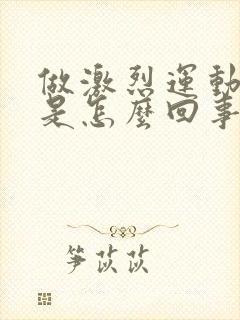 做激烈運動
是怎麼回事
笋苡苡